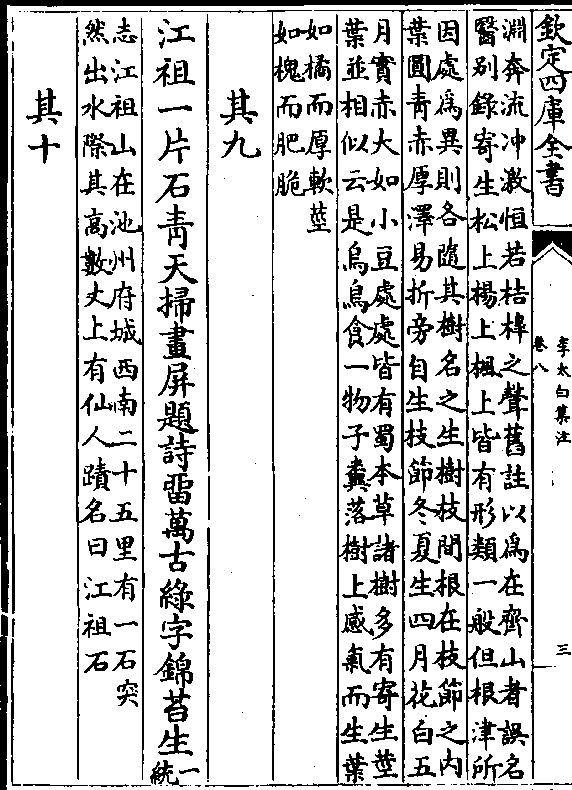 欽定四庫全書
李太白集注
卷八
三
淵奔流沖激恒若桔槔之聲舊註以為在齊山者誤名
醫别録寄生松上楊上楓上皆有形類一般但根津所
因處為異則各隨其樹名之生樹枝間根在枝節之内
葉圓青赤厚澤易折旁自生枝節冬夏生四月花白五
月實赤大如小豆處處皆有蜀本草諸樹多有寄生莖
葉並相似云是烏鳥食一物子糞落樹上感氣而生葉
如橘而厚軟莖
如槐而肥脆
其九
江祖一片石青天掃畫屏題詩留萬古緑字錦苔生一
統
志江祖山在池州府城西南二十五里有一石突
然出水際其高數丈上有仙人蹟名曰江祖石
其十